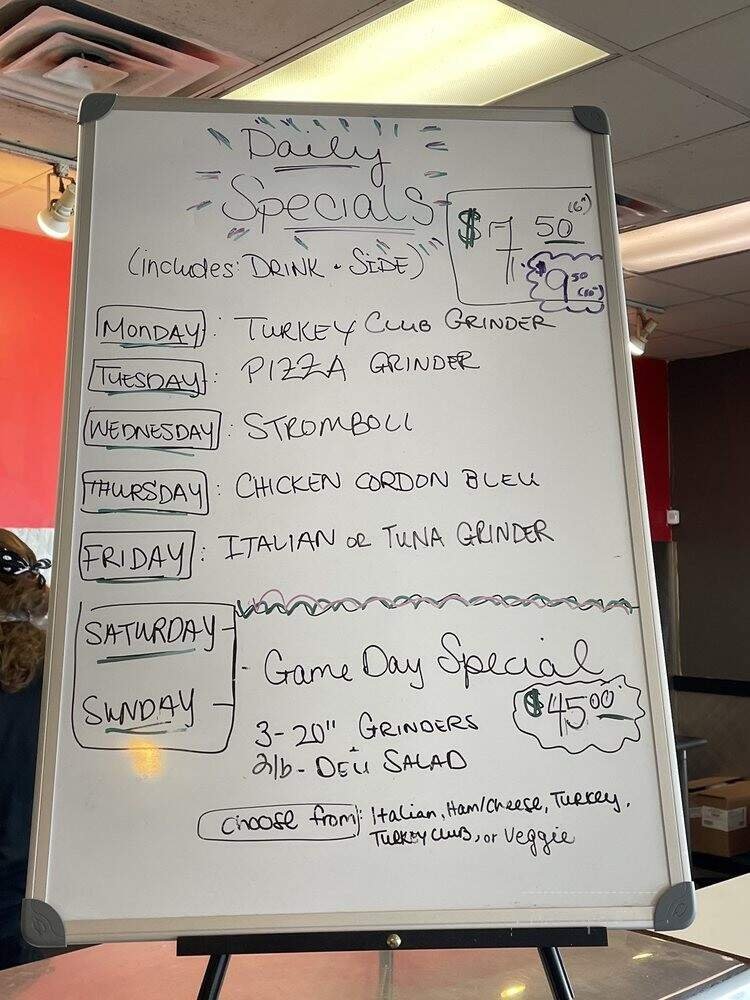 Daily
Specials
$7.50 (6")
$9.50 (10")
(includes: DRINK + SIDE)
MONDAY: TURKEY CLUB GRINDER
TUESDAY: PIZZA GRINDER
WEDNESDAY: STROMBOLI
THURSDAY: CHICKEN CORDON BLEU
FRIDAY: ITALIAN or TUNA GRINDER
SATURDAY -
SUNDAY -
- Game Day Special
$45.00
3-20" GRINDERS
2lb- DELI SALAD
choose from: Italian, Ham/Cheese, Turkey,
Turkey Club, or Veggie